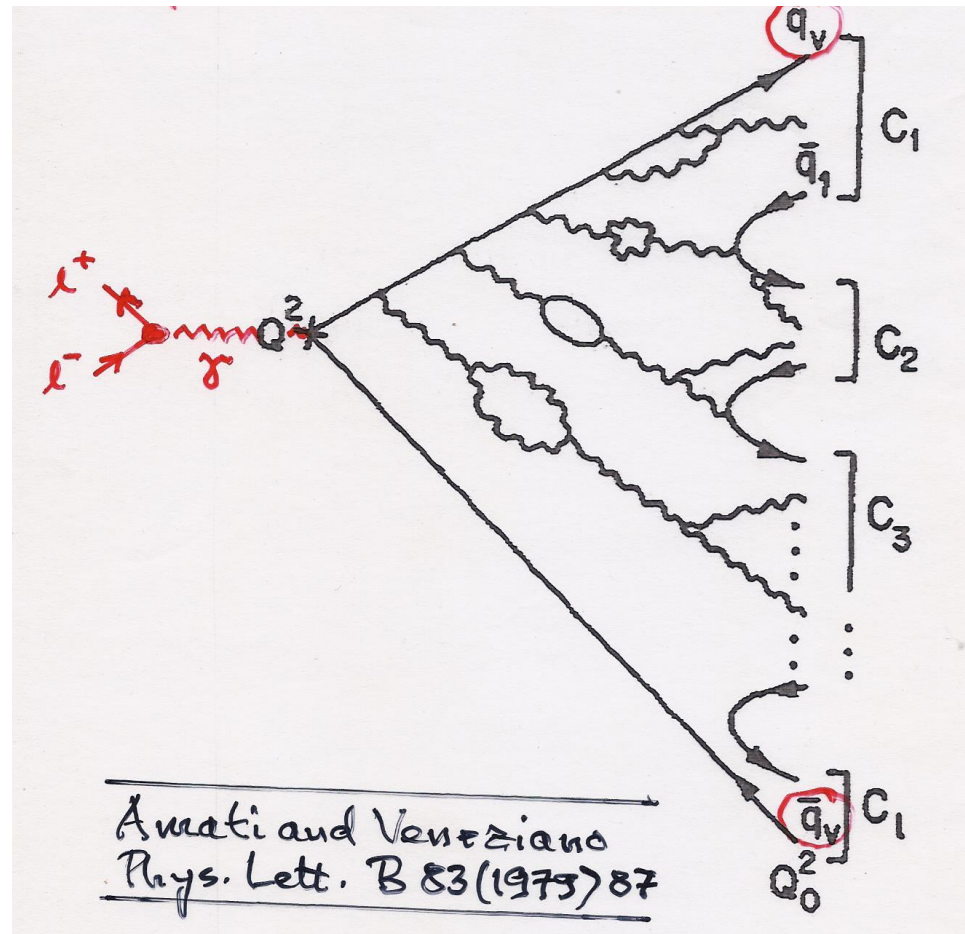 q_v
C_1
q̄_1
l^+
Q^2
l^-
γ
C_2
C_3
q̄_v
C_1
Q_0^2
Amati and Veneziano
Phys. Lett. B 83(1979)87